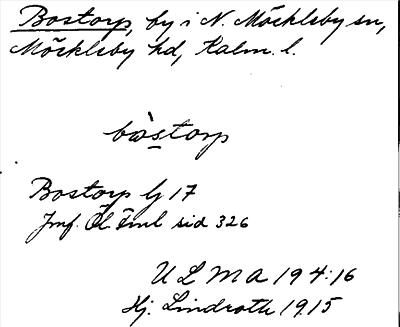 Bostorp, by i N. Möckleby sn,
Möckleby hd, Kalm. l.
bωstorp
Bostorp G 17
Jmf. Öl. Fml sid 326
ULMA 194:16
Hj. Lindroth 1915